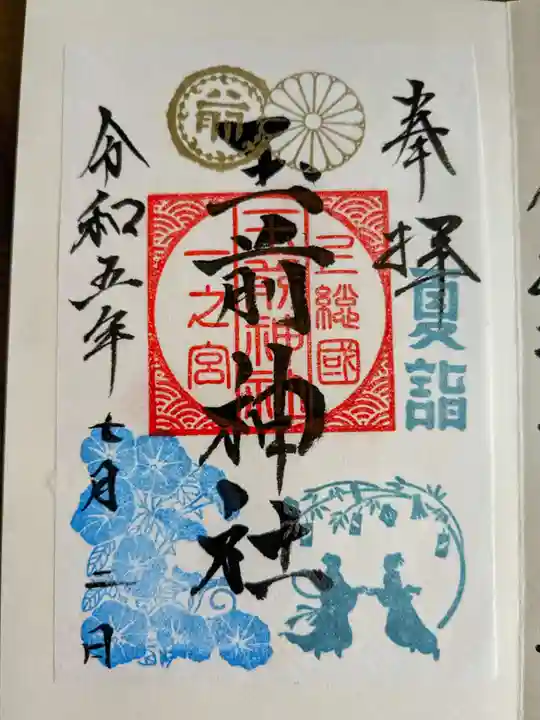 奉拝
夏詣
前
上総國
玉前神社
一之宮
玉前神社
令和五年
七月二日